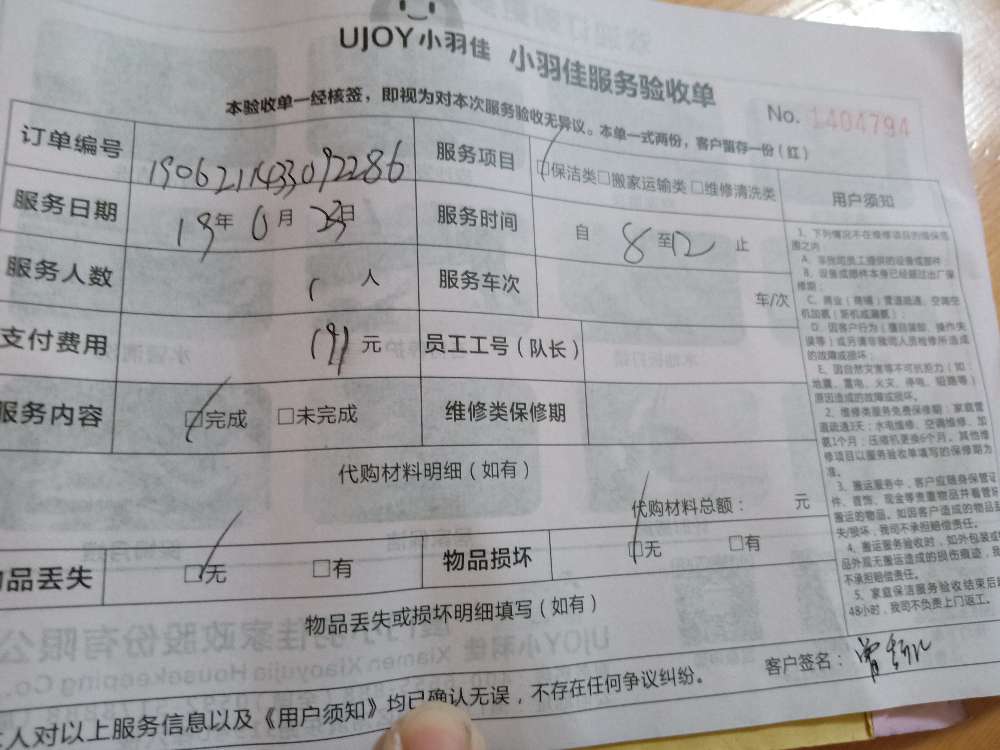 UJOY小羽佳 小羽佳服务验收单
No. 1404794
本验收单一经核签，即视为对本次服务验收无异议。本单一式两份，客户留存一份（红）
订单编号 服务项目 □保洁类□搬家运输类□维修清洗类 用户须知
服务日期 19年6月 服务时间 自 8 至12 止
服务人数 1 人 服务车次 车/次
支付费用 元 员工工号（队长）
服务内容 □完成 □未完成 维修类保修期
代购材料明细（如有）
代购材料总额： 元
品丢失 □无 □有 物品损坏 □无 □有
物品丢失或损坏明细填写（如有）
1、下列情况不在维修项目的维保范
围之内
A、非我司员工提供的设备或部件
B、设备或部件本身已经超过出厂保
修期；
C、商业（商铺）管道疏通、空调空
机加氨（新机或漏氨）；
D、因客户行为（擅自装卸、操作失
误等）或另请非我司人员检修所造成
的故障或损坏；
E、因自然灾害等不可抗拒力（如：
地震、雷电、火灾、停电、短路等）
原因造成的故障或损坏。
2、维修类服务免费保修期：家庭管
道疏通3天；水电维修、空调维修、加
氨1个月；压缩机更换6个月。其他维
修项目以服务验收单填写的保修期为
准。
3、搬运服务中，客户应随身保管证
件、首饰、现金等贵重物品并看管好
搬运的物品。如因客户造成的物品丢
失/损坏，我司不承担赔偿责任。
4、搬运服务验收时，如外包装或
品外观无搬运造成的损伤痕迹，我
不承担赔偿责任。
5、家庭保洁服务验收结束后超
48小时，我司不负责上门返工。
客户签名：
人对以上服务信息以及《用户须知》均已确认无误，不存在任何争议纠纷。